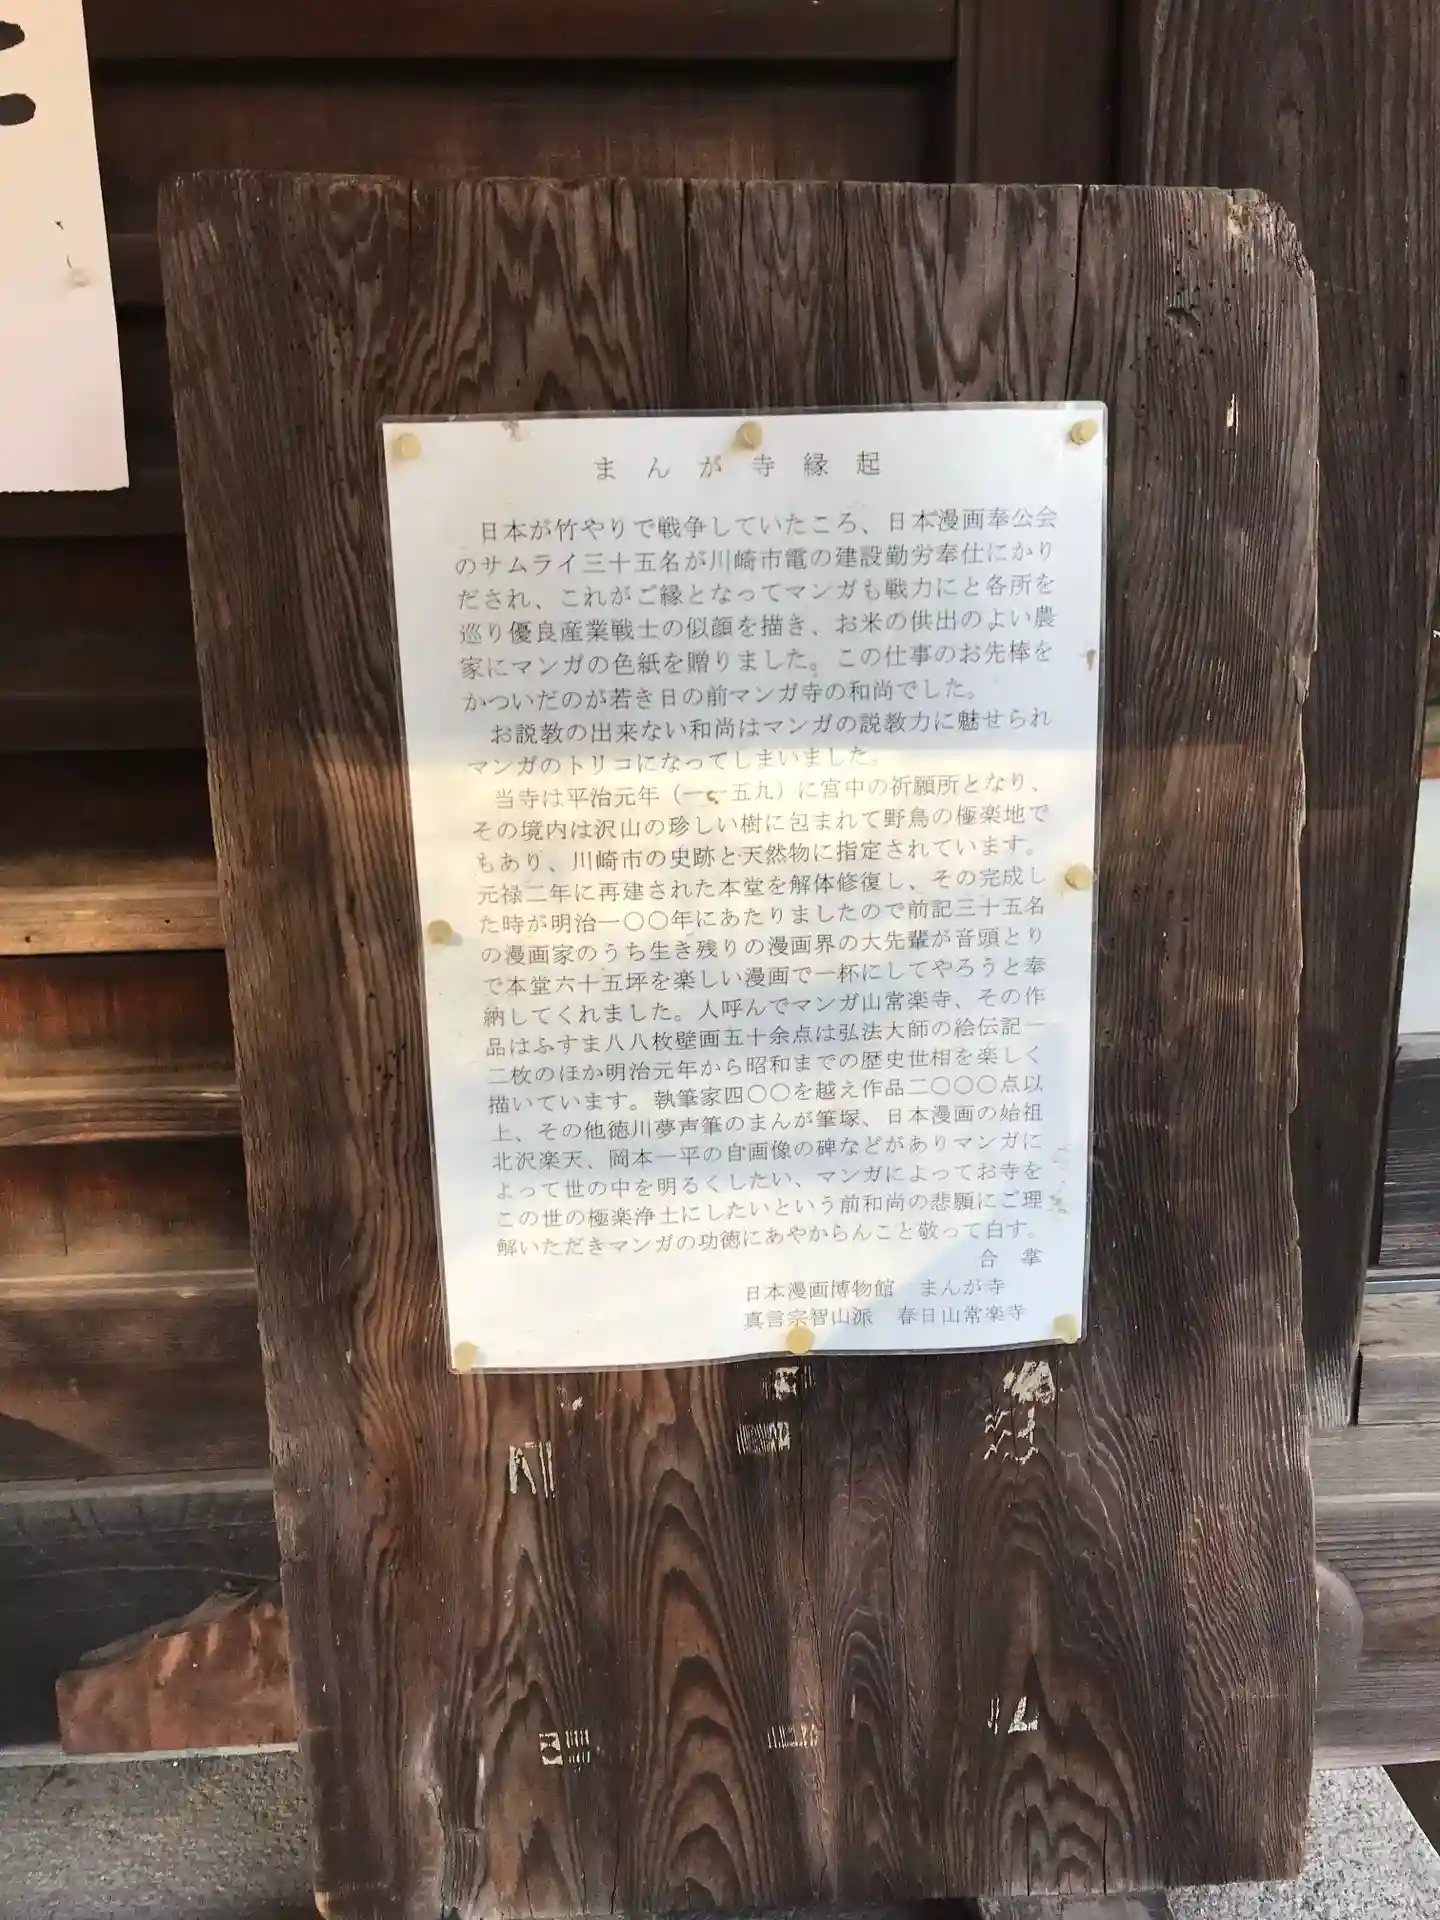 まんが寺縁起
日本が竹やりで戦争していたころ、日本漫画奉公会
のサムライ三十五名が川崎市電の建設勤労奉仕にかり
だされ、これがご縁となってマンガも戦力にと各所を
巡り優良産業戦士の似顔を描き、お米の供出のよい農
家にマンガの色紙を贈りました。この仕事のお先棒を
かついだのが若き日の前マンガ寺の和尚でした。
お説教の出来ない和尚はマンガの説教力に魅せられ
マンガのトリコになってしまいました。
当寺は平治元年（一一五九）に宮中の祈願所となり、
その境内は沢山の珍しい樹に包まれて野鳥の極楽地で
もあり、川崎市の史跡と天然物に指定されています。
元禄二年に再建された本堂を解体修復し、その完成し
た時が明治一〇〇年にあたりましたので前記三十五名
の漫画家のうち生き残りの漫画界の大先輩が音頭とり
で本堂六十五坪を楽しい漫画で一杯にしてやろうと奉
納してくれました。人呼んでマンガ山常楽寺、その作
品はふすま八八枚壁画五十余点は弘法大師の絵伝記一
二枚のほか明治元年から昭和までの歴史世相を楽しく
描いています。執筆家四〇〇を越え作品二〇〇〇点以
上、その他徳川夢声筆のまんが筆塚、日本漫画の始祖
北沢楽天、岡本一平の自画像の碑などがありマンガに
よって世の中を明るくしたい、マンガによってお寺を
この世の極楽浄土にしたいという前和尚の悲願にご理
解いただきマンガの功徳にあやからんこと敬って白す。
合掌
日本漫画博物館　まんが寺
真言宗智山派　春日山常楽寺